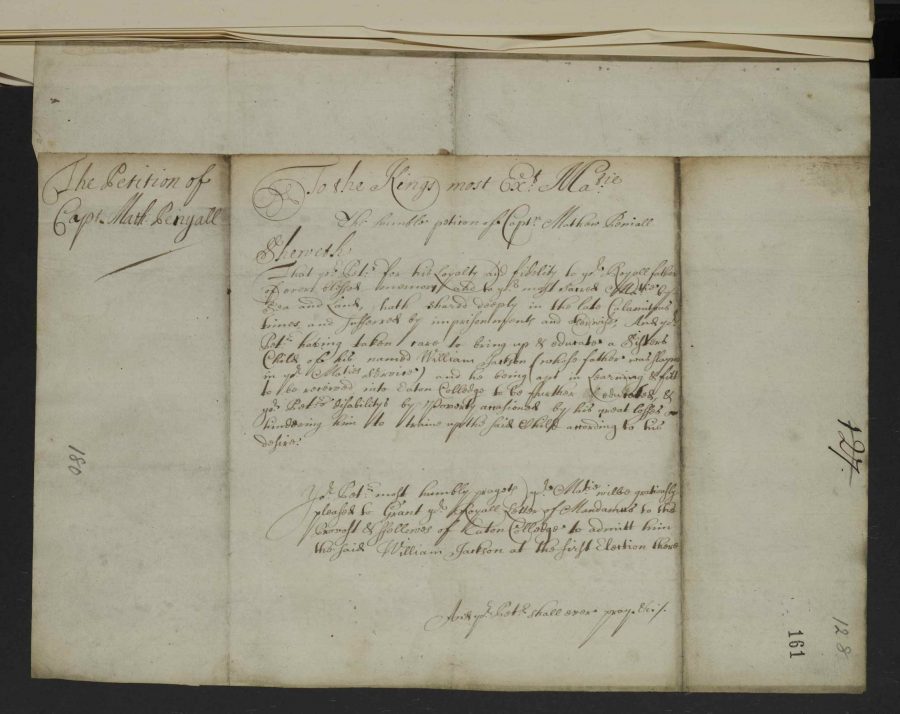 The Petition of
Capt. Math Penyall
To the Kings most Ext. Matie
The humble peticon of Captn. Mathew Peniall
Sheweth
That yor. Petr. for his Loyalty and fidelity to yor. Royall father
of ever blessed memory and to yor. most sacred Matie. by
Sea and Land, hath shared deeply in the late Calamitous
times, and suffered by imprisonments and otherwise, And yor.
Petr. having taken care to bring up & educate a Sisters
Child of his named William Jackson (whose father was slayne
in yor. Maties service) and he being apt in Learning & fitt
to be received into Eaton Colledge to be further educated, &
yor. Petrs. disabilitys by Poverty occationed by his great losses
hindering him to traine up the said Child according to his
desire.
Yor. Petr. most humbly prayeth yor. Matie. wilbe gratiously
pleased to Grant yor. Royall Letter of Mandamus to the
Provost & ffellowes of Eaton Colledge to admitt him
the said William Jackson at the first Election there
And yor. Petr. shall ever pray &c.
180
127.
128
161